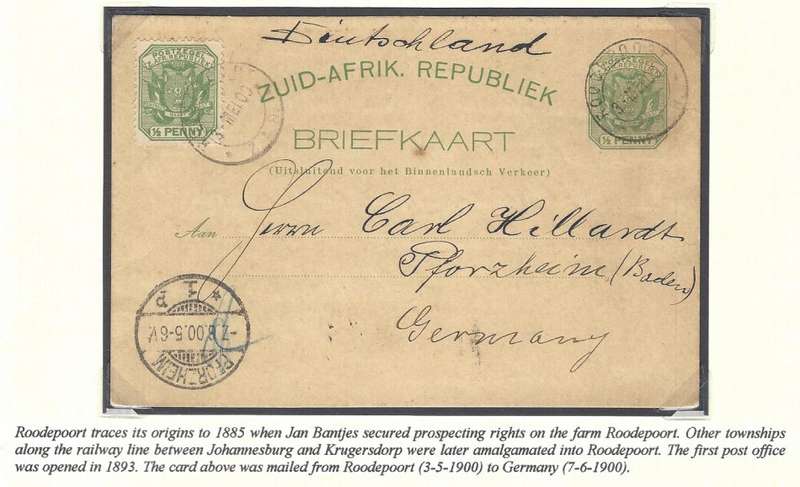 Deutschland
POSTZEGEL
Z. AFR. REPUBLIEK
½ PENNY
MEI 00
ZUID-AFRIK. REPUBLIEK
BRIEFKAART
(Uitsluitend voor het Binnenlandsch Verkeer)
ROODEPOORT
½ PENNY
Aan Herrn Carl Hillardt
Pforzheim (Baden)
Germany
PFORZHEIM
-7.6.00.5-6V.
* 1 P
Roodepoort traces its origins to 1885 when Jan Bantjes secured prospecting rights on the farm Roodepoort. Other townships
along the railway line between Johannesburg and Krugersdorp were later amalgamated into Roodepoort. The first post office
was opened in 1893. The card above was mailed from Roodepoort (3-5-1900) to Germany (7-6-1900).